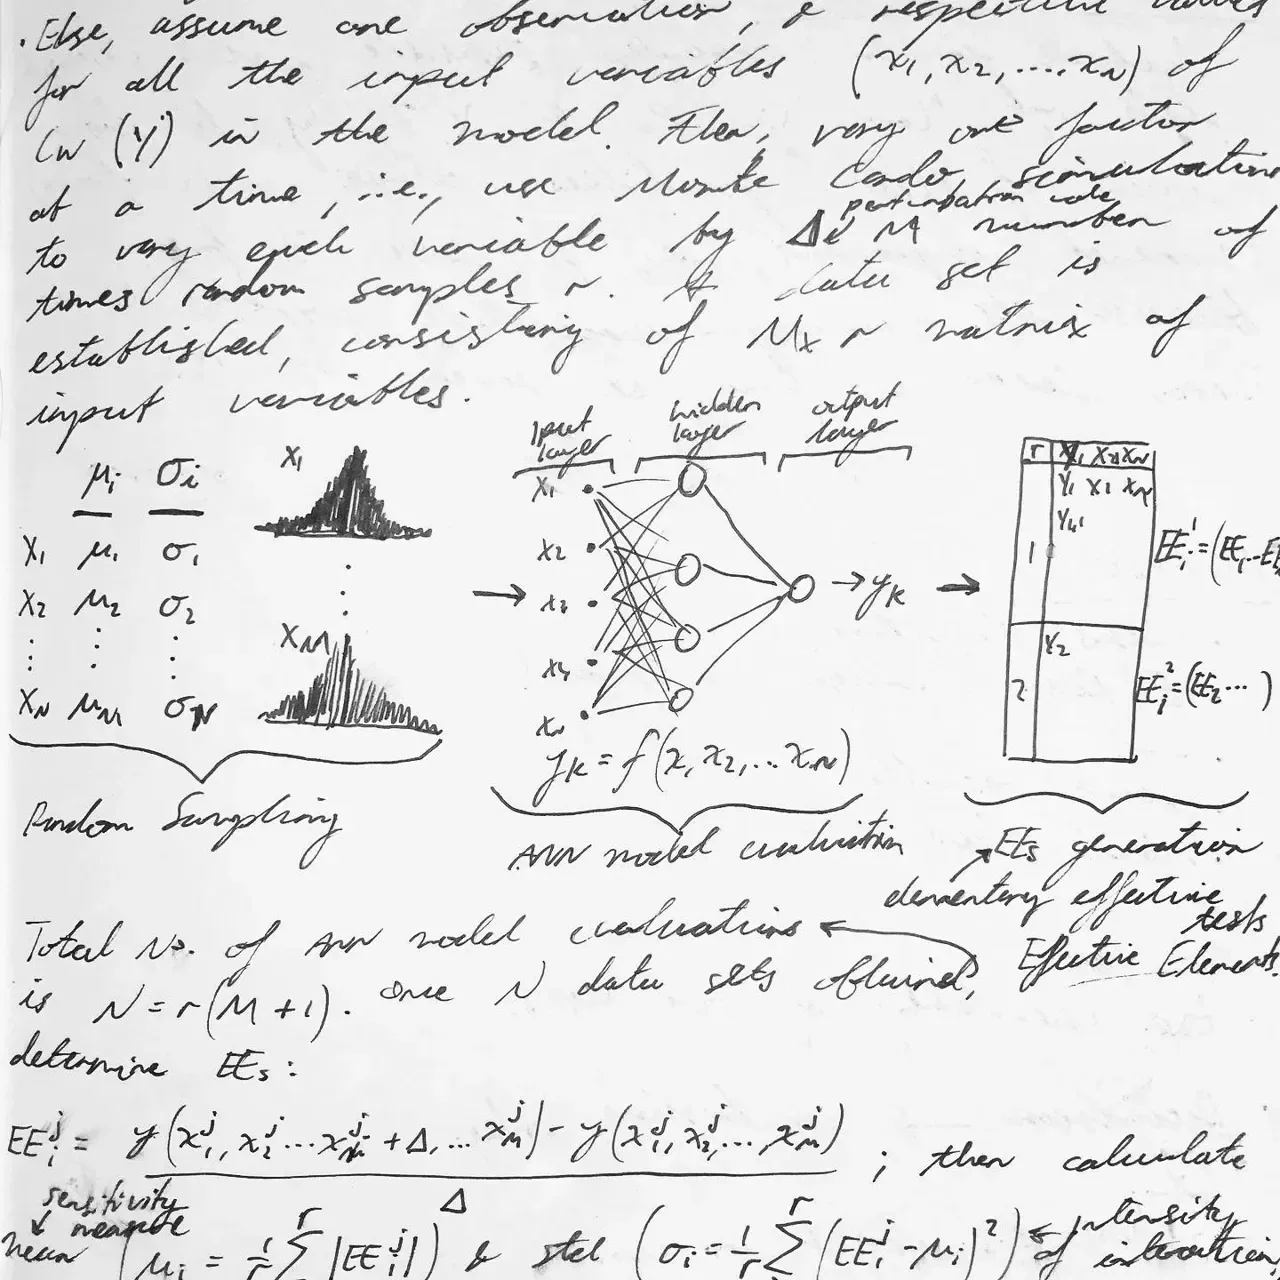 . Else, assume one observation, & respective values
for all the input variables (x1, x2, ....xN) of
Cw (Y) in the model. Then, vary one factor
at a time, i.e., use Monte Carlo simulation
perturbation
to vary each variable by Δi M number of
times random samples r. A data set is
established, consisting of M x r matrix of
input variables.
μi σi
X1 μ1 σ1
X2 μ2 σ2
⋮ ⋮ ⋮
XN μM σN
X1
⋮
XM
Random Sampling
Input layer
hidden layer
output layer
x1
x2
x3
xN
→ yk →
yk = f(x, x2, ... xN)
ANN model evaluation
r X1 X2 XN
Y1 X1 XN
1
Y2
2
EEi¹ = (EE1...EE
EEi² = (EE2...)
EEs generation
elementary effective
tests
Effective Elements.
Total No. of ANN model evaluations
is N = r(M + 1). Once N data sets obtained,
determine EEs:
EEiʲ = y(x1ʲ, x2ʲ ... xMʲ + Δ, ... xMʲ) - y(x1ʲ, x2ʲ ..., xMʲ) / Δ ; then calculate
sensitivity
measure
mean (μi = 1/r Σʳ |EEiʲ|) & std (σi = 1/r Σʳ (EEiʲ - μi)²) ← intensity
of interaction,